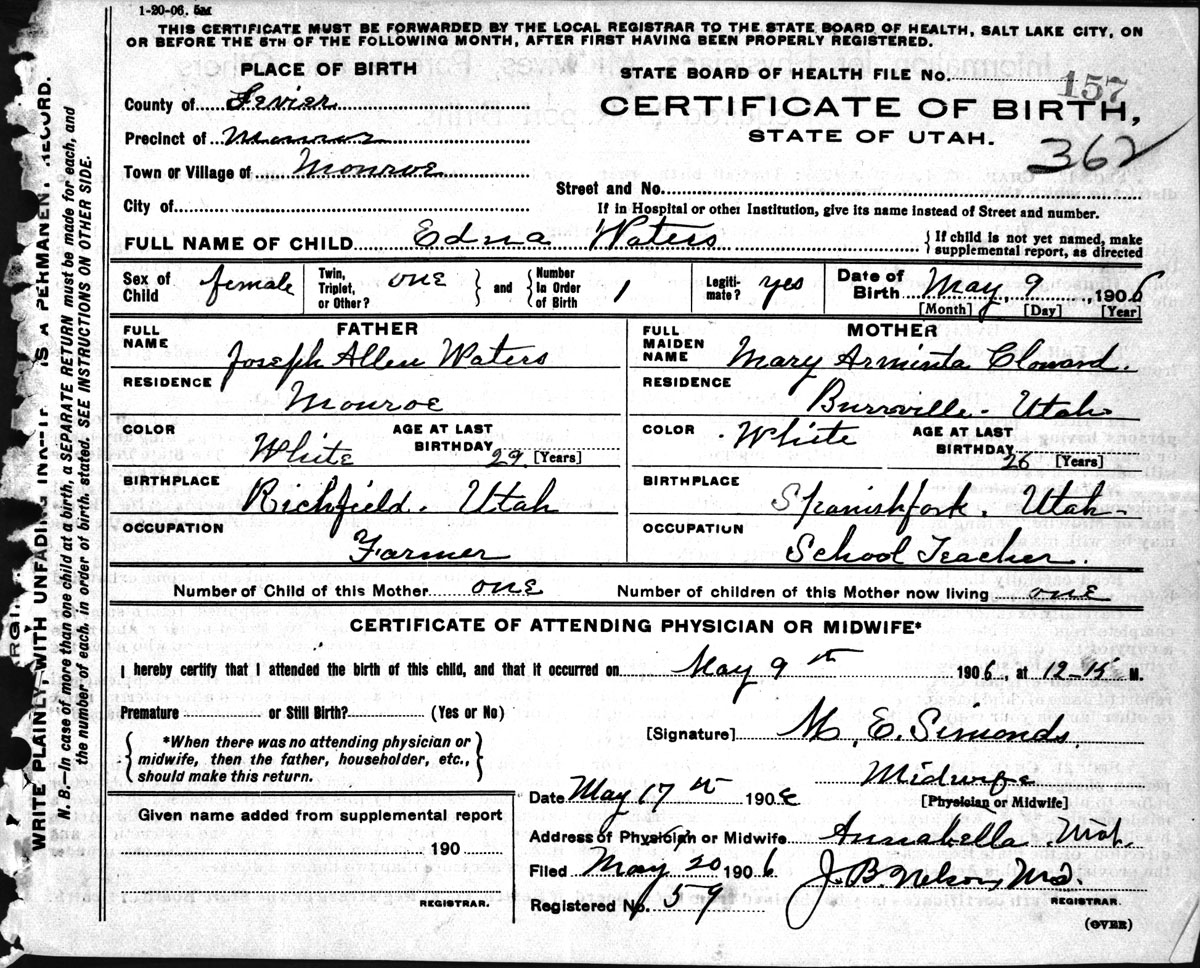 1-20-06. 5M
THIS CERTIFICATE MUST BE FORWARDED BY THE LOCAL REGISTRAR TO THE STATE BOARD OF HEALTH, SALT LAKE CITY, ON
OR BEFORE THE 5TH OF THE FOLLOWING MONTH, AFTER FIRST HAVING BEEN PROPERLY REGISTERED.
PLACE OF BIRTH
STATE BOARD OF HEALTH FILE No. 157
County of Sevier
CERTIFICATE OF BIRTH,
Precinct of Monroe
STATE OF UTAH.
362
Town or Village of Monroe
Street and No.
City of
If in Hospital or other Institution, give its name instead of Street and number.
FULL NAME OF CHILD Edna Waters { If child is not yet named, make
supplemental report, as directed
Sex of Child female Twin, Triplet, or Other? one } and { Number In Order of Birth 1 Legitimate? yes Date of Birth May 9, 1906
[Month] [Day] [Year]
FATHER
MOTHER
FULL NAME Joseph Allen Waters
FULL MAIDEN NAME Mary Arminta Cloward.
RESIDENCE Monroe
RESIDENCE Burrville. Utah
COLOR White AGE AT LAST BIRTHDAY 29 [Years]
COLOR White AGE AT LAST BIRTHDAY 26 [Years]
BIRTHPLACE Richfield. Utah
BIRTHPLACE Spanishfork. Utah.
OCCUPATION Farmer
OCCUPATION School Teacher.
Number of Child of this Mother one Number of children of this Mother now living one
CERTIFICATE OF ATTENDING PHYSICIAN OR MIDWIFE*
I hereby certify that I attended the birth of this child, and that it occurred on May 9th 1906, at 12-15 M.
Premature or Still Birth? (Yes or No)
[Signature] M. E. Simonds.
{ *When there was no attending physician or
midwife, then the father, householder, etc.,
should make this return. }
Midwife
[Physician or Midwife]
Date May 17th 1906
Given name added from supplemental report
190
REGISTRAR.
Address of Physician or Midwife Annabella. Utah.
Filed May 20 1906 J. B. Nelson, MD.
REGISTRAR.
Registered No. 59
(OVER)
WRITE PLAINLY WITH UNFADING IS A PERMANENT RECORD.
N. B.—In case of more than one child at a birth, a SEPARATE RETURN must be made for each, and
the number of each, in order of birth, stated. SEE INSTRUCTIONS ON OTHER SIDE.